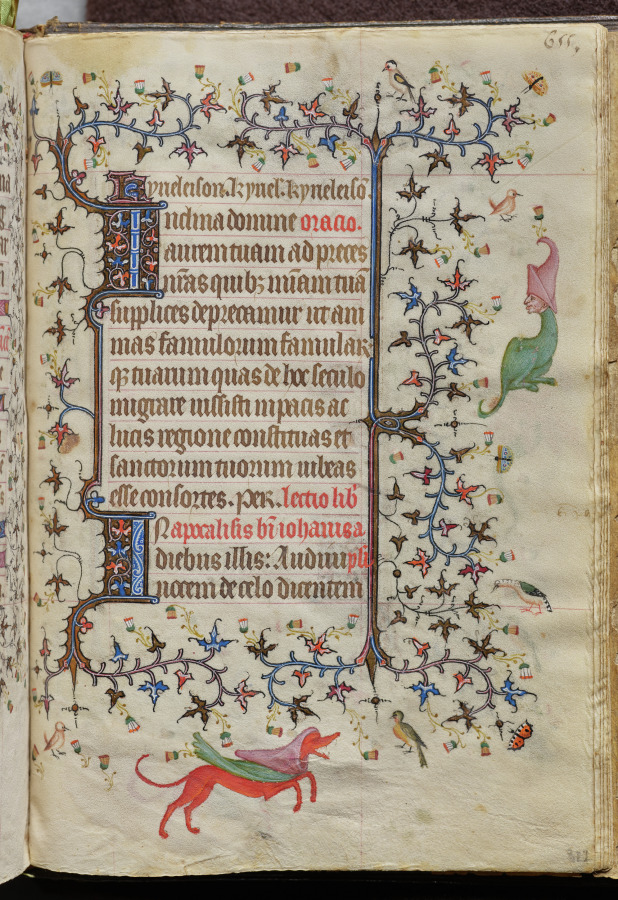 655.
kyrieleison. kyriel. kyrieleiso.
Inclina domine oracio.
aurem tuam ad preces
nr̄as quibꝫ mīam tuā
supplices deprecamur ut ani
mas famulorum famular
qꝫ tuarum quas de hoc seculo
migrare iussisti in pacis ac
lucis regione constituas et
sanctorum tuorum iubeas
esse consortes. per. lectio lib̄
In apocalisis bī iohanis a
diebus illis: Audiui pli.
uocem de celo dicentem